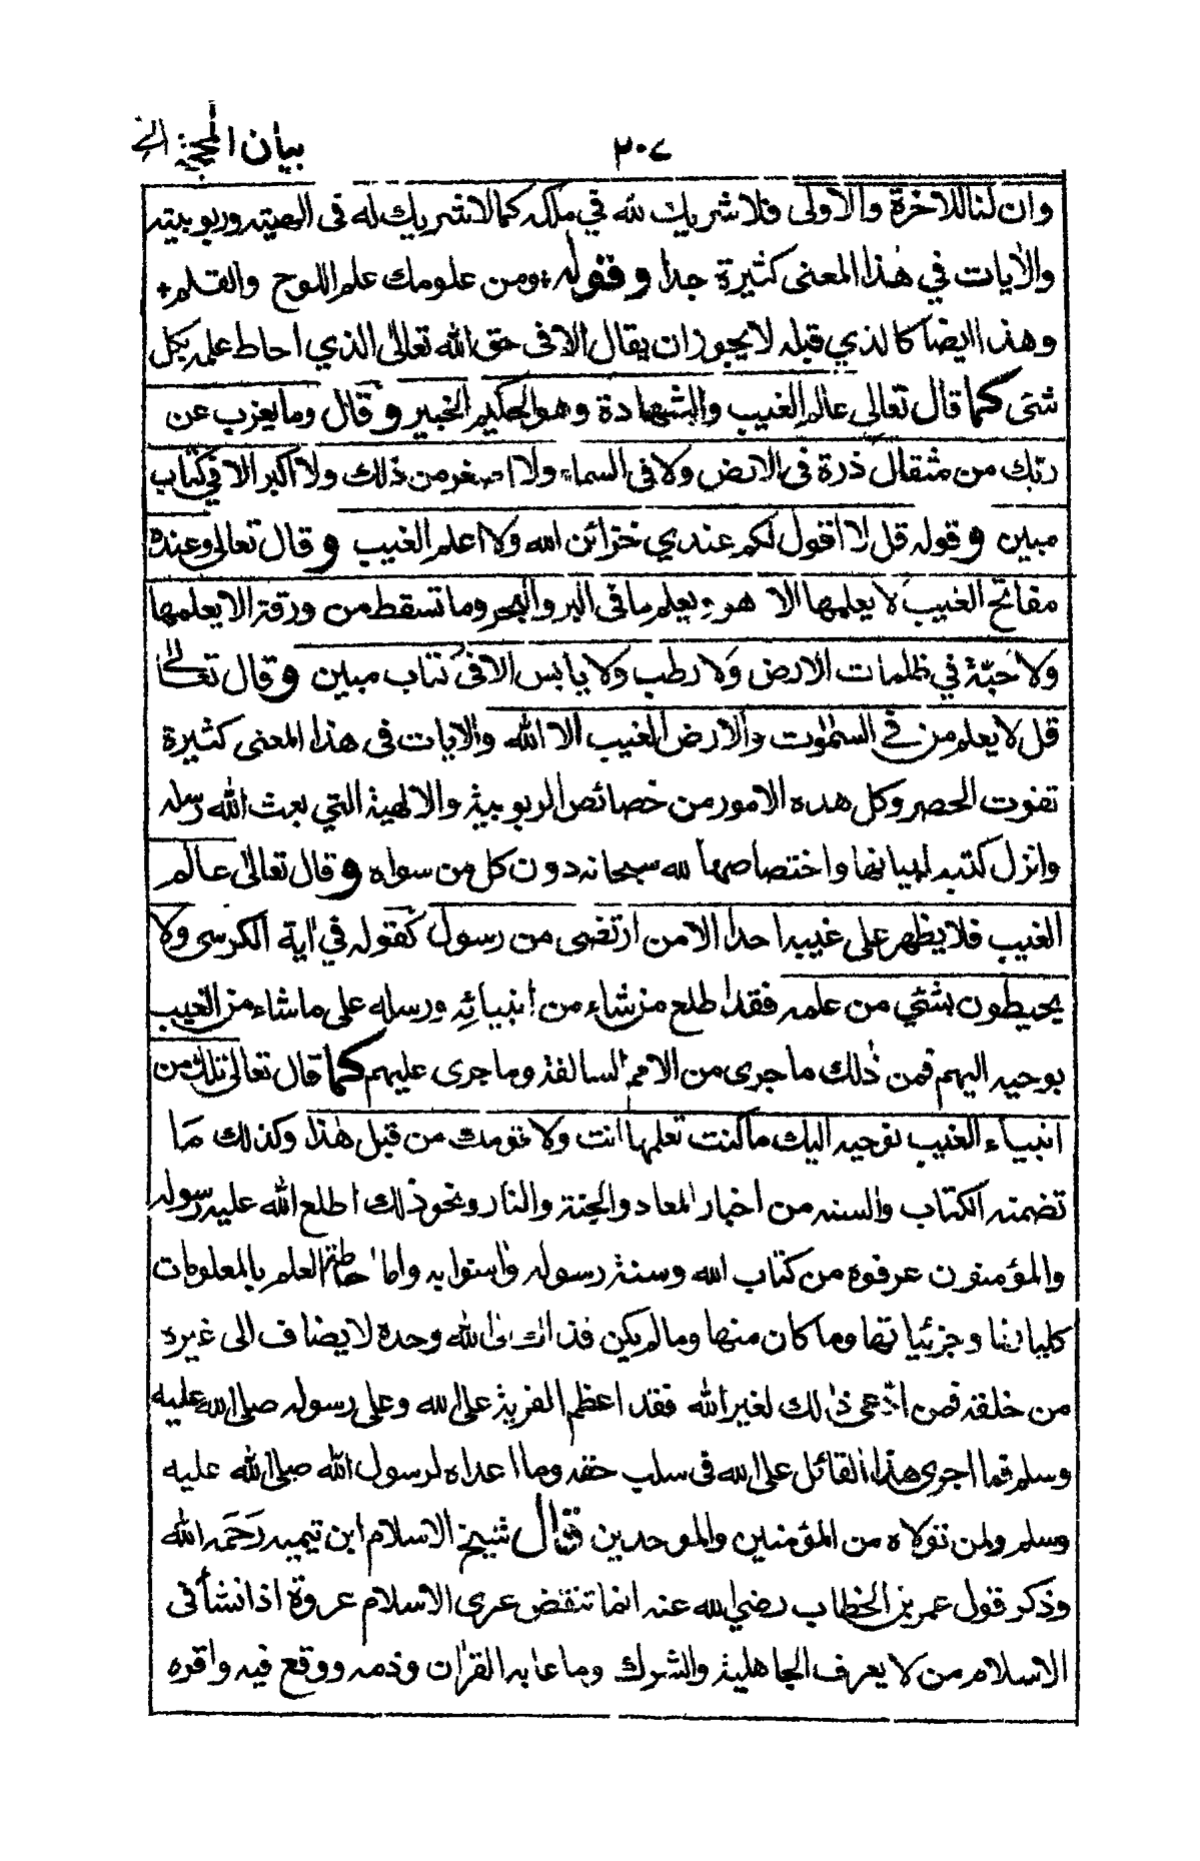 بيان المحجة الخ
٢٠٧
وان لنا للاخرة والاولى فلا شريك لله في ملكه كما لا شريك له فى الهيته وربوبيته
والاٰيات في هٰذا المعنى كثيرة جدا وقوله + ومن علومك علم اللوح والقلم +
وهذا ايضا كالذي قبله لا يجوز ان يقال الا فى حق الله تعالى الذي احاط علمه بكل
شئ كما قال تعالى عالم الغيب والشهادة وهو الحكيم الخبير وقال وما يعزب عن
ربك من مثقال ذرة فى الارض ولا فى السماء ولا اصغر من ذٰلك ولا اكبر الا في كتاب
مبين وقوله قل لا اقول لكم عندي خزائن الله ولا اعلم الغيب وقال تعالى وعنده
مفاتح الغيب لا يعلمها الا هو ويعلم ما فى البر والبحر وما تسقط من ورقة الا يعلمها
ولا حبّة في ظلمات الارض ولا رطب ولا يابس الا فى كتاب مبين وقال تعالىٰ
قل لا يعلم من في السمٰوٰت والارض الغيب الا الله والايات فى هذا المعنى كثيرة
تفوت الحصر وكل هذه الامور من خصائص الربوبية والالهية التي بعث الله رسله
وانزل كتبه لبيانها واختصاصها لله سبحانه دون كل من سواه وقال تعالىٰ عالم
الغيب فلا يظهر على غيبه احدا الا من ارتضى من رسول كقوله في اٰية الكرسى ولا
يحيطون بشئي من علمه فقد اطلع من شاء من انبيائه ورسله على ما شاء من الغيب
بوحيه اليهم فمن ذٰلك ما جرى من الامم السالفة وما جرى عليهم كما قال تعالى تلك من
انبياء الغيب نوحيه اليك ما كنت تعلمها انت ولا قومك من قبل هٰذا وكذلك مَا
تضمنه الكتاب والسنه من اخبار المعاد والجنة والنار ونحو ذلك اطلع الله عليه رسوله
والمؤمنون عرفوه من كتاب الله وسنة رسوله واٰمنوا به واما احاطة العلم بالمعلومات
كلياتها وجزئياتها وما كان منها وما لم يكن فذاك الى الله وحده لا يضاف الى غيره
من خلقه فمن ادّعى ذٰلك لغير الله فقد اعظم الفرية على الله وعلى رسوله صلى الله عليه
وسلم فما اجرى هذا القائل على الله فى سلب حقه وما اعداه لرسول الله صلى الله عليه
وسلم ولمن تولاه من المؤمنين والموحدين قال شيخ الاسلام ابن تيميه رَحمَه الله
وذكر قول عمر بن الخطاب رضي الله عنه انما تنقض عرى الاسلام عروة اذا نشأ فى
الاسلام من لا يعرف الجاهلية والشرك وما عابه القراٰن وذمه ووقع فيه واقره